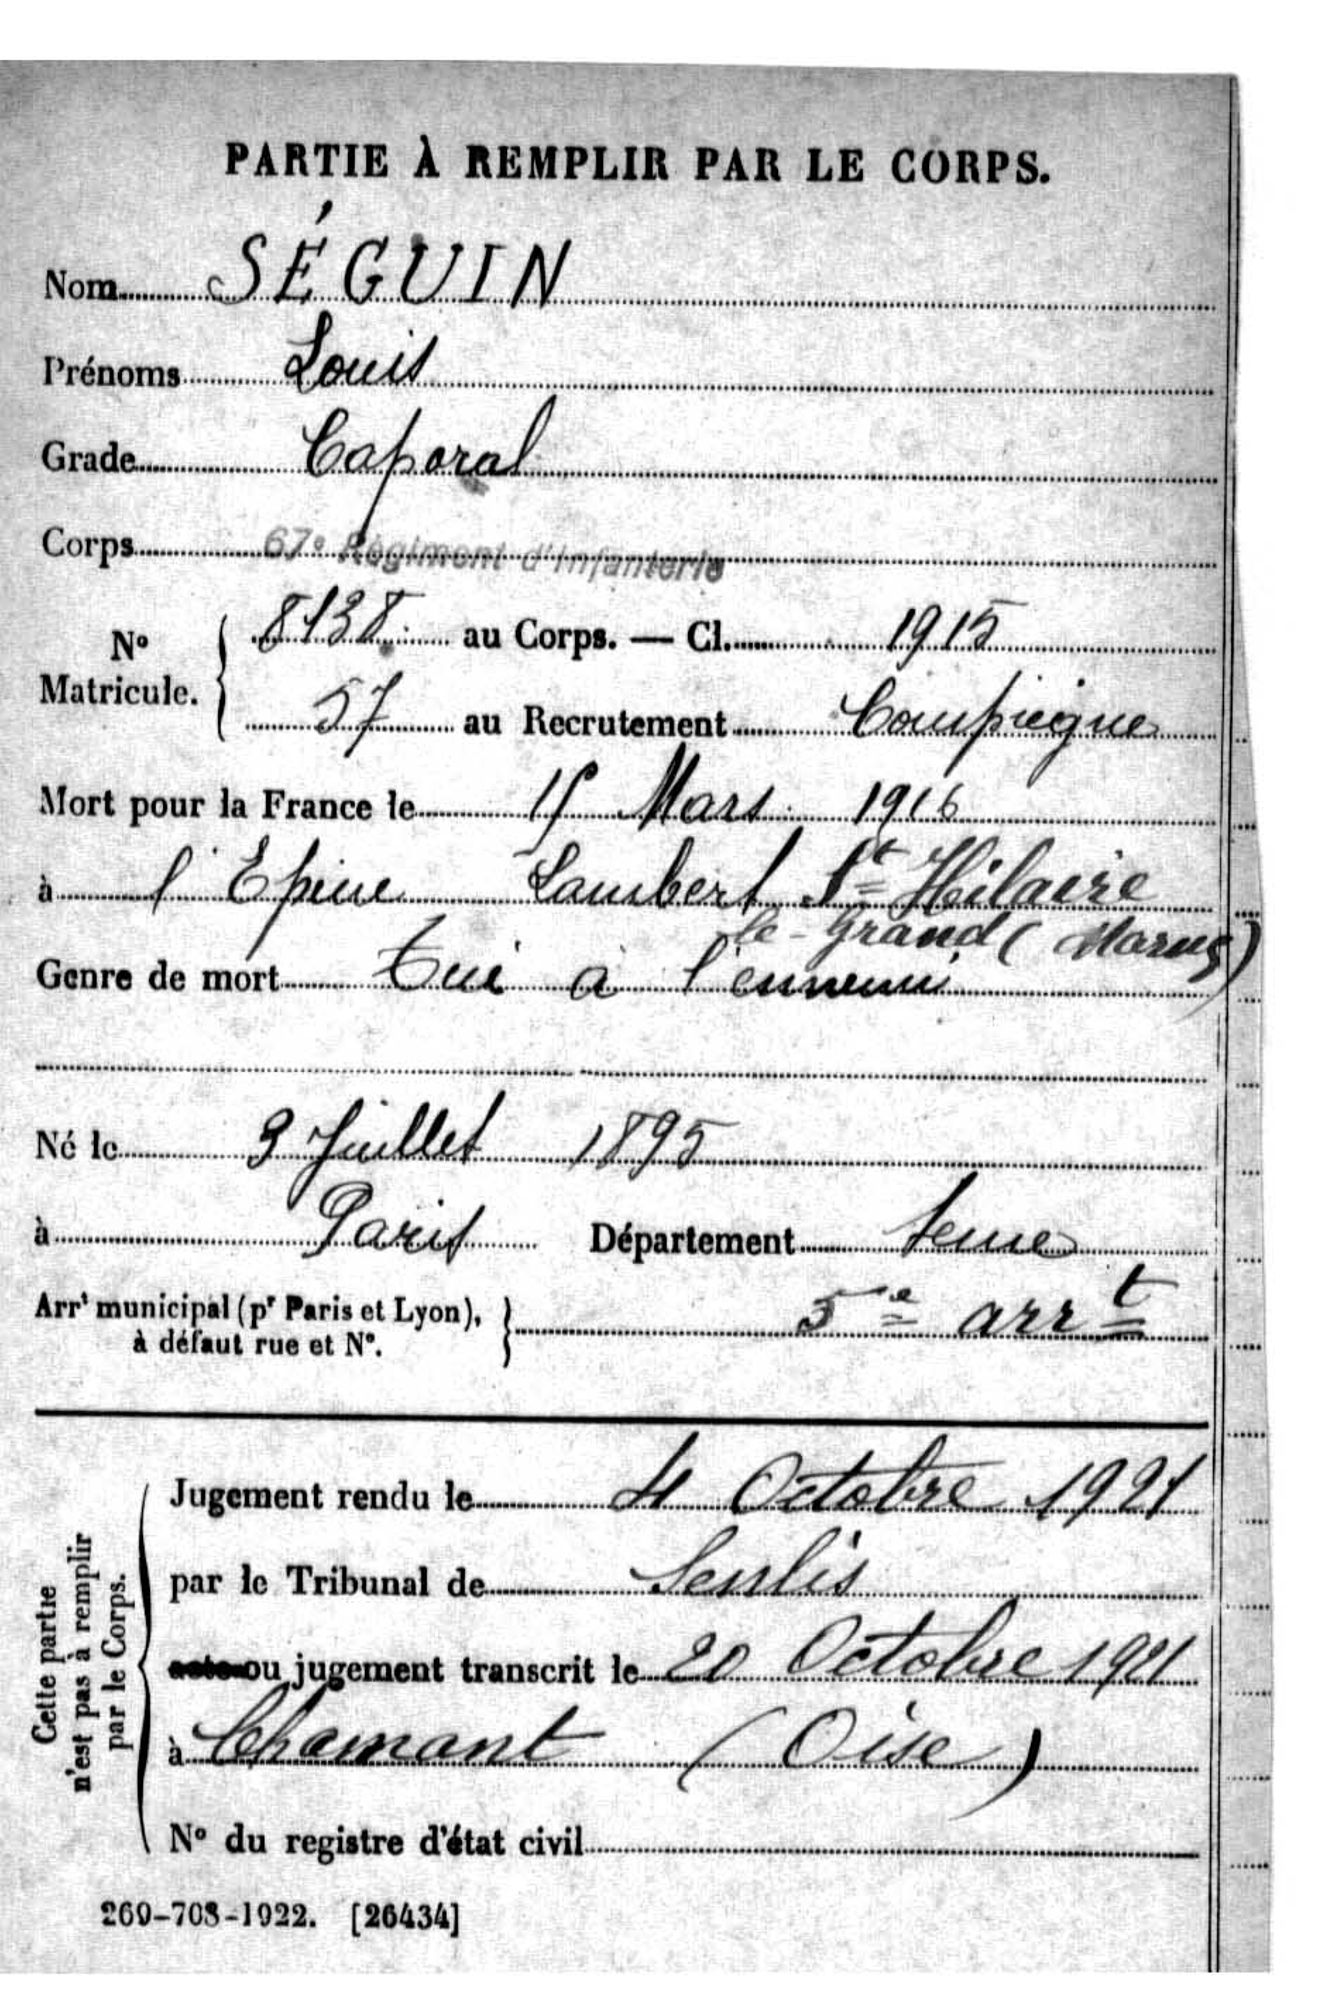 PARTIE À REMPLIR PAR LE CORPS.
Nom SÉGUIN
Prénoms Louis
Grade Caporal
Corps 67e Régiment d'Infanterie
No Matricule. { 8138 au Corps. — Cl. 1915
57 au Recrutement Compiègne
Mort pour la France le Mars 1916
à l'Epine Lambert St Hilaire
le-Grand (Marne)
Genre de mort Tué à l'ennemi
Né le 3 Juillet 1895
à Paris Département Seine
Arrt municipal (pr Paris et Lyon),
à défaut rue et No. } 5e arrt
Cette partie
n'est pas à remplir
par le Corps.
Jugement rendu le 4 Octobre 1921
par le Tribunal de Senlis
acte ou jugement transcrit le 20 Octobre 1921
à Chamant (Oise)
No du registre d'état civil
269-708-1922. [26434]